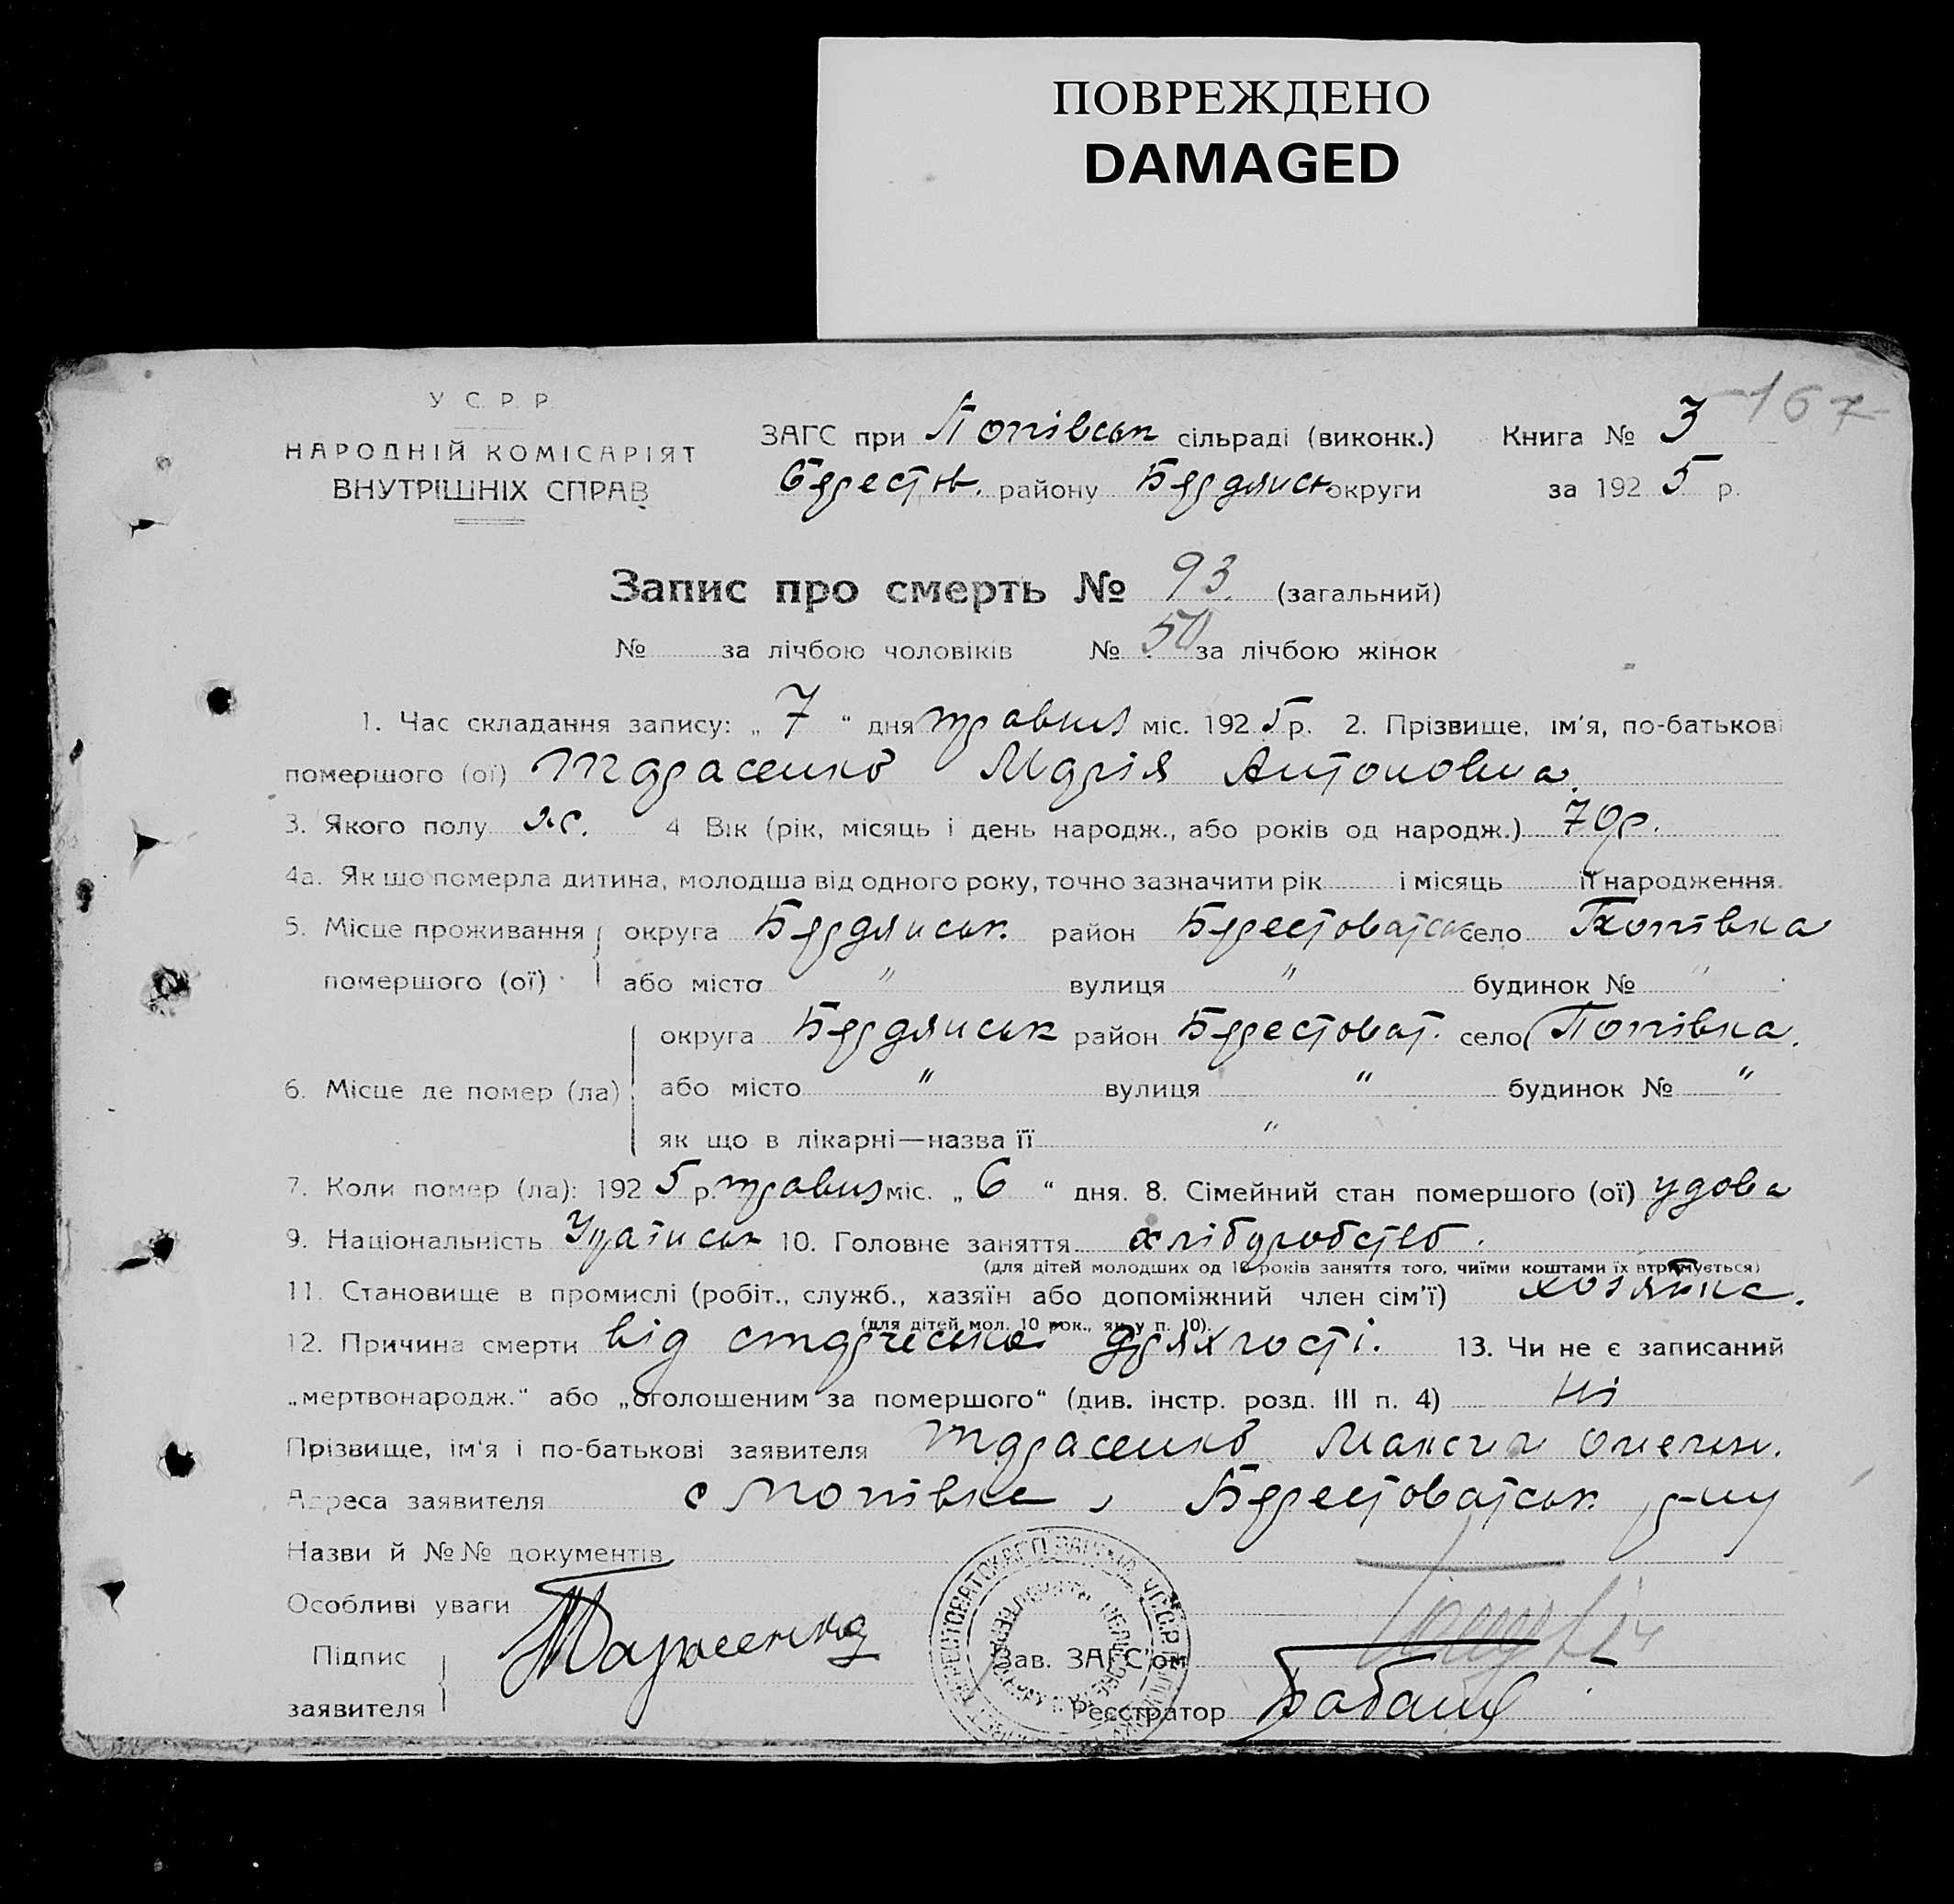 ПОВРЕЖДЕНО
DAMAGED
167
У. С. Р. Р.
НАРОДНІЙ КОМІСАРІЯТ
ВНУТРІШНІХ СПРАВ
ЗАГС при Попівськ сільраді (виконк.) Книга № 3
Берестов. району Бердянськ округи за 1925 р.
Запис про смерть № 93 (загальний)
№ за лічбою чоловіків № 50 за лічбою жінок
1. Час складання запису: „ 7 “ дня травня міс. 1925 р. 2. Прізвище, ім'я, по-батькові
помершого (ої) Тарасенко Марія Антоновна.
3. Якого полу ж. 4 Вік (рік, місяць і день народж., або років од народж.) 70 р.
4а. Як що померла дитина, молодша від одного року, точно зазначити рік і місяць її народження.
5. Місце проживання округа Бердянськ. район Берестоватськ село Попівка
помершого (ої) або місто " вулиця " будинок № "
округа Бердянськ район Берестоват. село Попівка.
6. Місце де помер (ла) або місто " вулиця " будинок № "
як що в лікарні—назва її "
7. Коли помер (ла): 1925 р. травня міс. „ 6 “ дня. 8. Сімейний стан помершого (ої) удова
9. Національність Українськ 10. Головне заняття хліборобство.
(для дітей молодших од 10 років заняття того, чиїми коштами їх втримується)
11. Становище в промислі (робіт., служб., хазяїн або допоміжний член сім'ї) хозяйка.
(для дітей мол. 10 рок., як у п. 10).
12. Причина смерти від старческой дряхлості. 13. Чи не є записаний
„мертвонародж.“ або „оголошеним за помершого“ (див. інстр. розд. III п. 4) Ні
Прізвище, ім'я і по-батькові заявителя Тарасенко Максим
Адреса заявителя с Попівка, Берестоватськ р-ну
Назви й №№ документів
Особливі уваги
Підпис
заявителя Тарасенко
Зав. ЗАГС'ом
Реєстратор